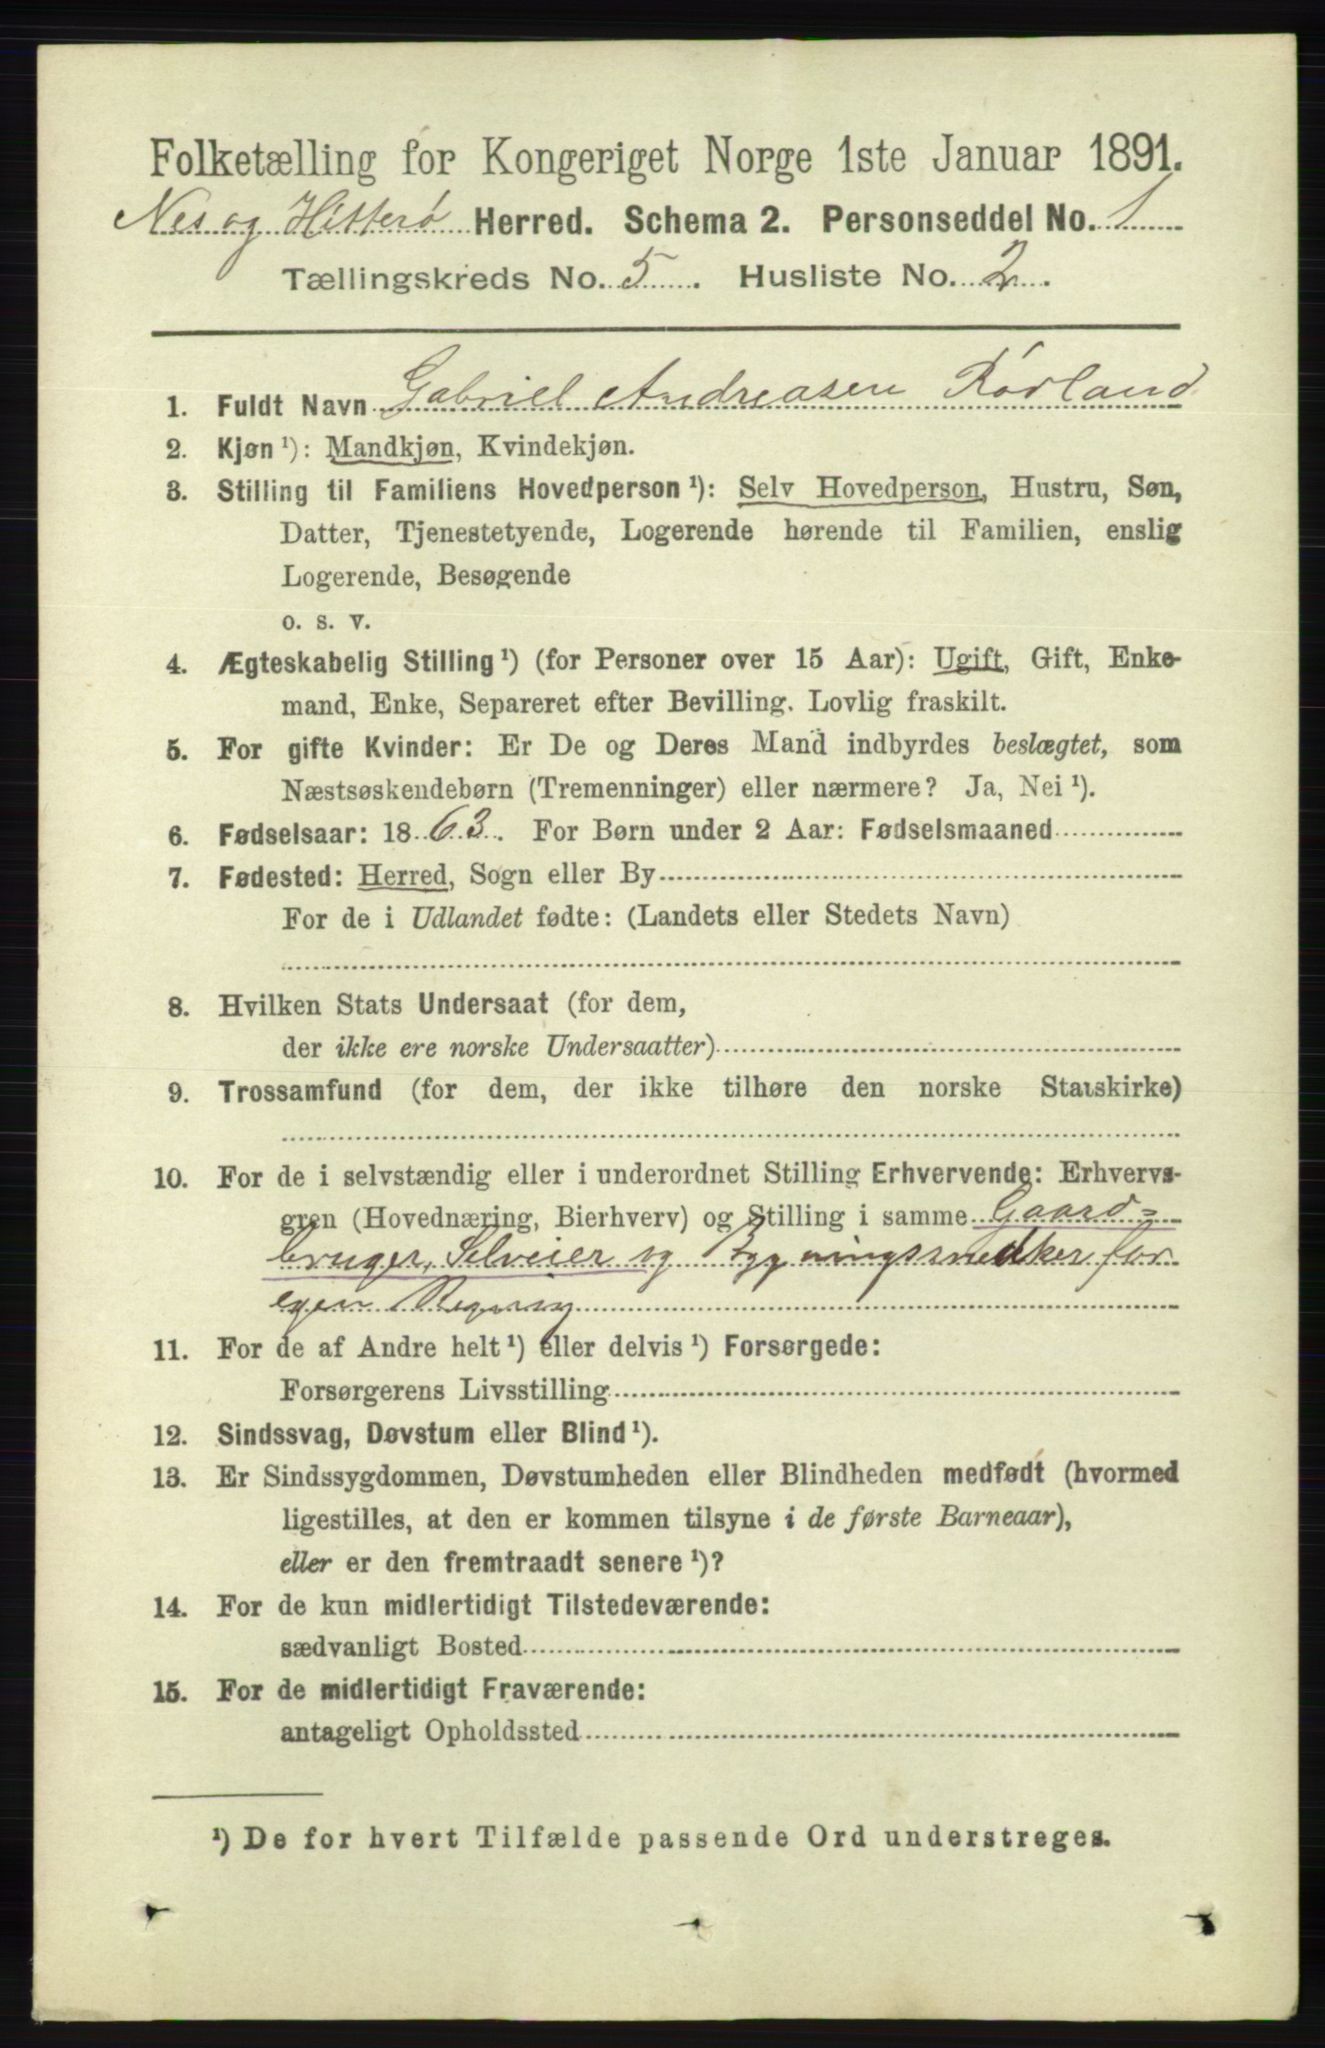 Folketælling for Kongeriget Norge 1ste Januar 1891.
Nes og Hitterø Herred. Schema 2. Personseddel No. 1
Tællingskreds No. 5. Husliste No. 2.
1. Fuldt Navn Gabriel Andreasen Rørland
2. Kjøn ¹): Mandkjøn, Kvindekjøn.
3. Stilling til Familiens Hovedperson ¹): Selv Hovedperson, Hustru, Søn,
Datter, Tjenestetyende, Logerende hørende til Familien, enslig
Logerende, Besøgende
o. s. v.
4. Ægteskabelig Stilling ¹) (for Personer over 15 Aar): Ugift, Gift, Enke-
mand, Enke, Separeret efter Bevilling. Lovlig fraskilt.
5. For gifte Kvinder: Er De og Deres Mand indbyrdes beslægtet, som
Næstsøskendebørn (Tremenninger) eller nærmere? Ja, Nei ¹).
6. Fødselsaar: 1863. For Børn under 2 Aar: Fødselsmaaned
7. Fødested: Herred, Sogn eller By
For de i Udlandet fødte: (Landets eller Stedets Navn)
8. Hvilken Stats Undersaat (for dem,
der ikke ere norske Undersaatter)
9. Trossamfund (for dem, der ikke tilhøre den norske Statskirke)
10. For de i selvstændig eller i underordnet Stilling Erhvervende: Erhvervs-
gren (Hovednæring, Bierhverv) og Stilling i samme Gaard=
bruger, Selveier og Bygningssnedker for
egen Regning
11. For de af Andre helt ¹) eller delvis ¹) Forsørgede:
Forsørgerens Livsstilling
12. Sindssvag, Døvstum eller Blind ¹).
13. Er Sindssygdommen, Døvstumheden eller Blindheden medfødt (hvormed
ligestilles, at den er kommen tilsyne i de første Barneaar),
eller er den fremtraadt senere ¹)?
14. For de kun midlertidigt Tilstedeværende:
sædvanligt Bosted
15. For de midlertidigt Fraværende:
antageligt Opholdssted
¹) De for hvert Tilfælde passende Ord understreges.